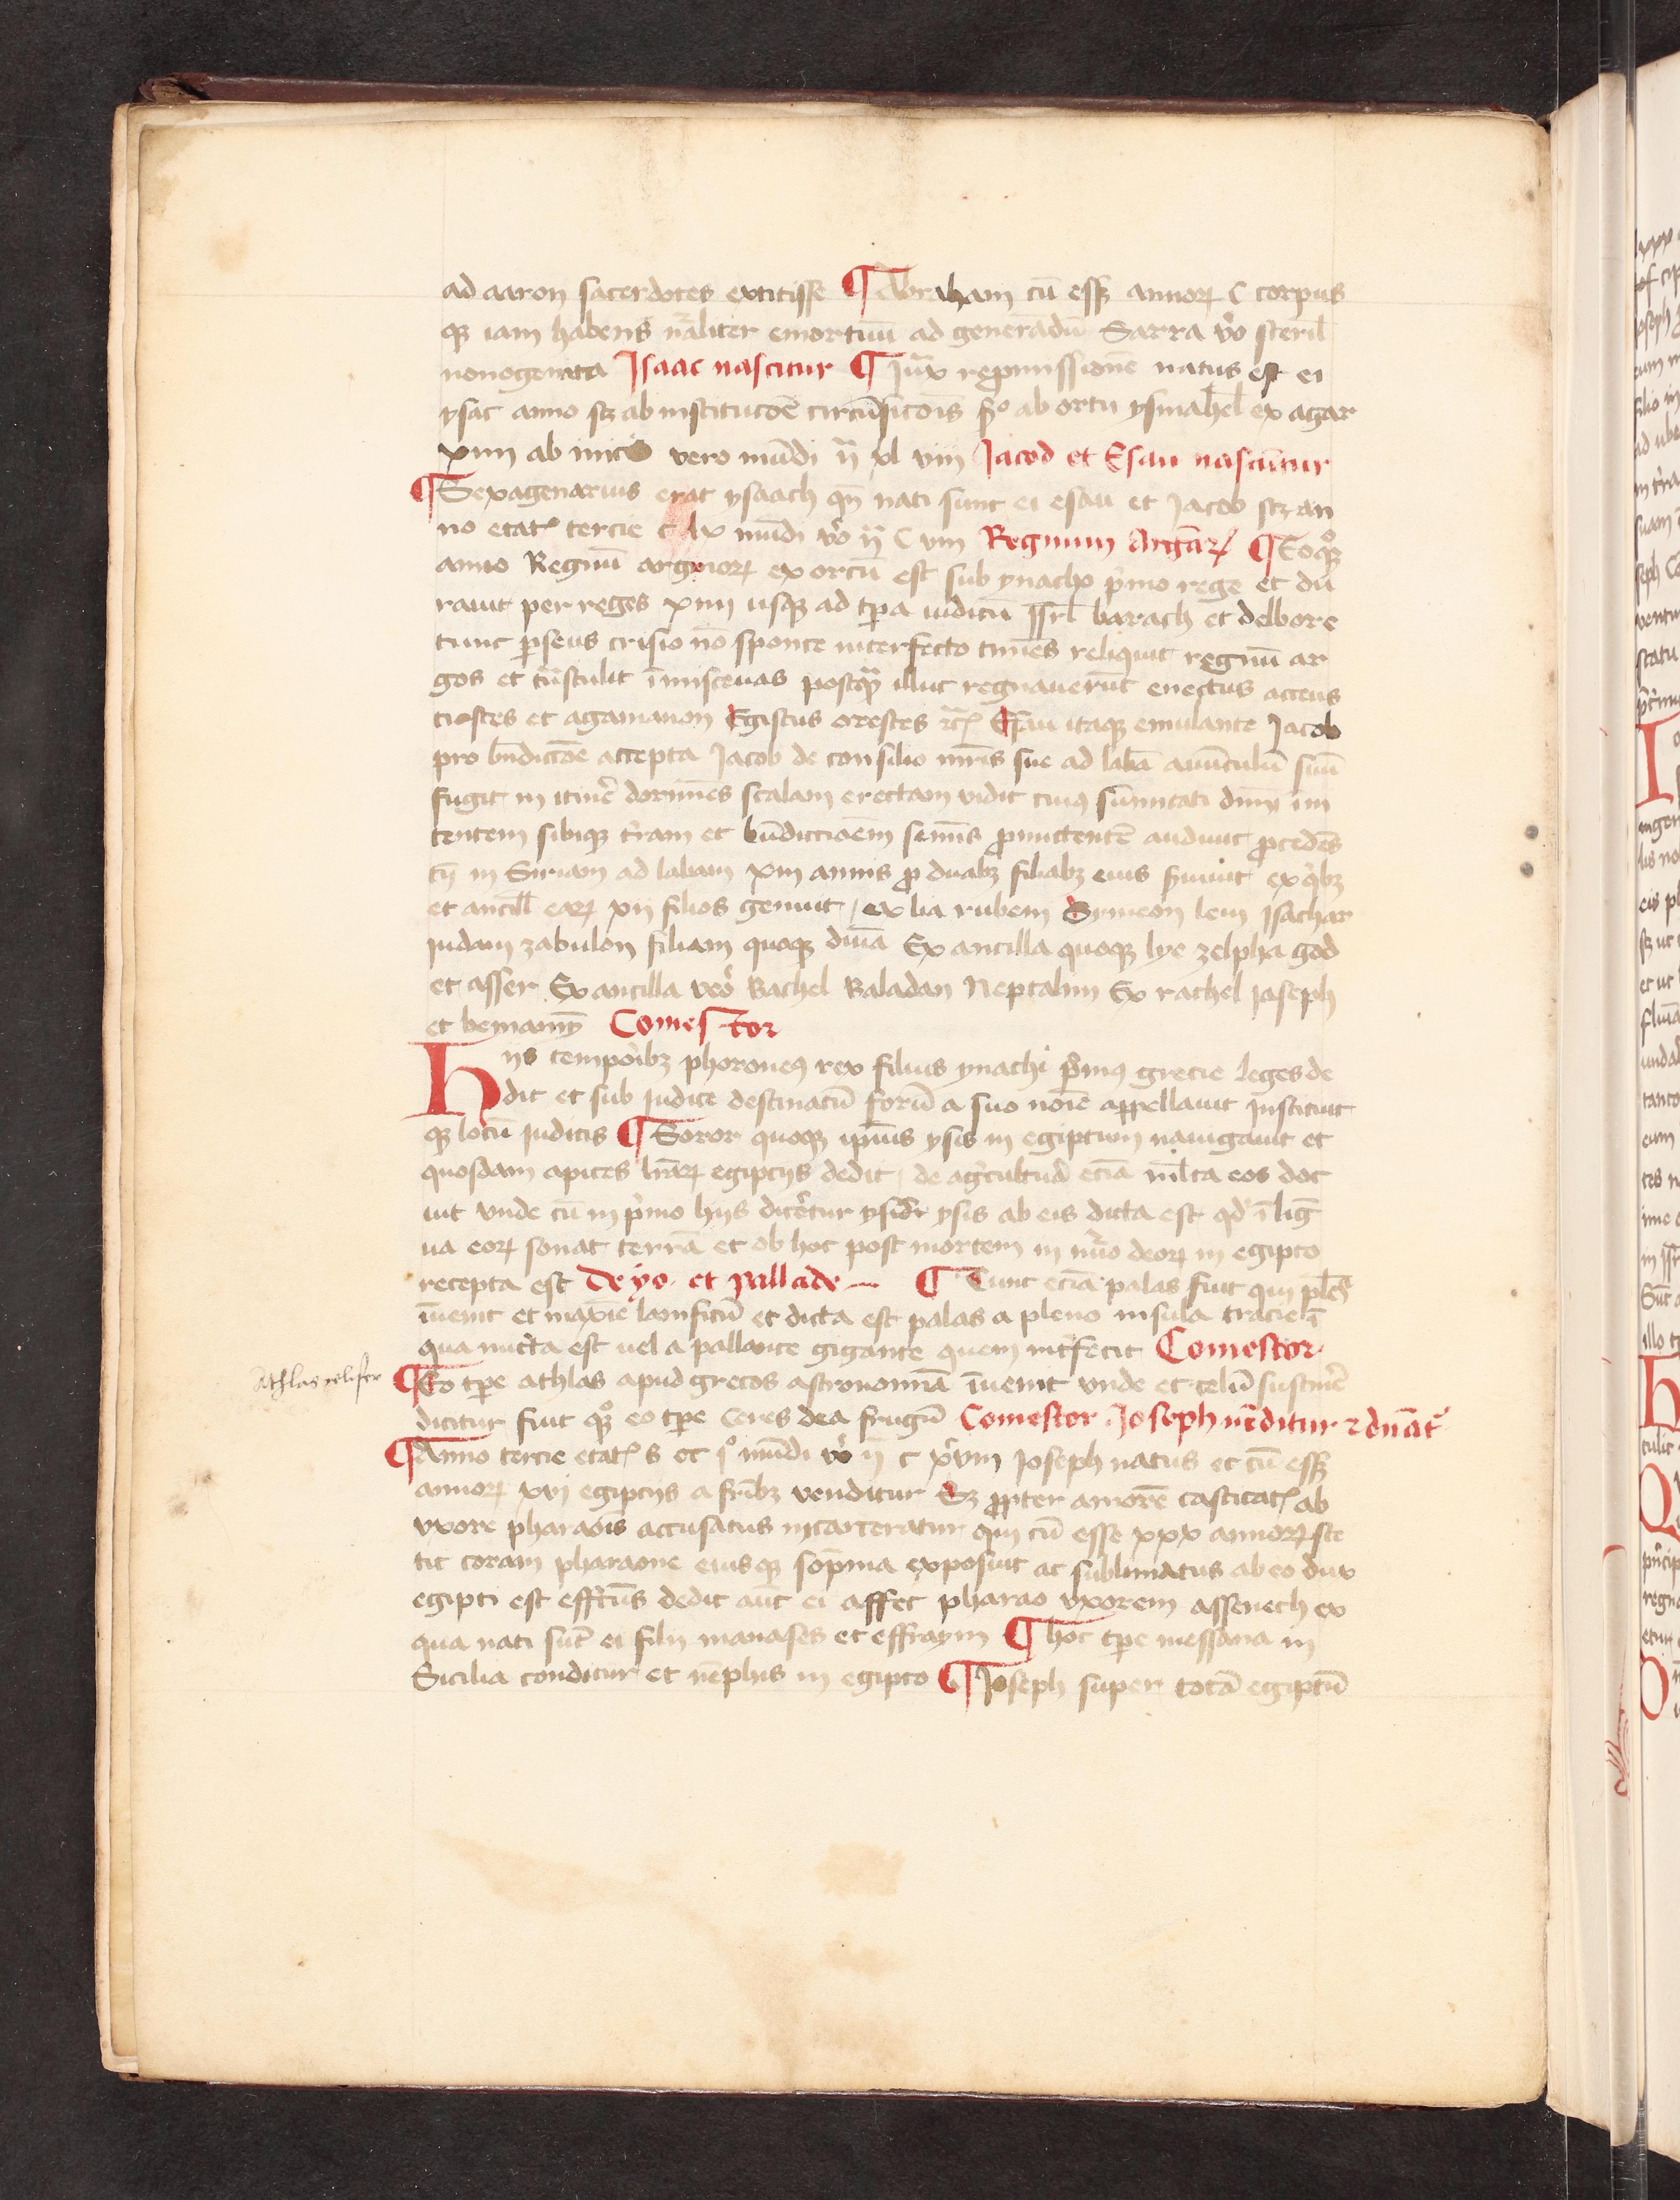 ad aaron sacerdotes extitisse ¶ Abraham cū essꝫ annoꝝ C corpus
qꝫ iam habens nr̄aliter emortuū ad generādū Sarra v̊o steril̄
nonogenita Isaac nascitur ¶ Iuxͣ repromissionē natus est ei
ysac anno sꝫ ab institucōe circūsicōis ab ortu ysmahel̄ ex agar
xiiii ab inicio vero mūdi xl viii Jacob et Esau nascūtur
¶ Sexagenarius erat ysaach qn̄ nati sunt ei esau et Jacob sꝫ an
no etatꝭ tercie c lx mūdi v̊o C viii Regnum Argaꝝ ¶ Eoqꝫ
anno Regnū argiuoꝝ exortū est sub ynacho p̍mo rege et du
rauit per reges xiiii usqꝫ ad tp̄a iudicū Isrl̄ barach et delbore
tunc p̱seus crisio nō sponte interfecto timēs reliquit regnū ar
gos et trāstulit postqᷓ illuc regnauerūt enectus acteus
tiestes et agamanon Egistus orestes ⁊cͣ Esau itaqꝫ emulante Jacob
pro bn̄dictōe accepta Jacob de consilio mr̄is sue ad labā auūculū suū
fugit in itine͛ dormiēs scalam erectam vidit cuiꝰ sūmitati dn̄m ini
tentem sibiqꝫ tr̄am et bn̄dictioēm semīs ꝓmictentē audiuit ꝓcedēs
in Siriam ad labam xiii annis ꝓ duabꝫ filiabꝫ eius s̄uiuit ex q̍bꝫ
et ancill̄ eaꝝ xij filios genuit / ex lia rubem Symeon leui Isachar
iudam zabulon filiam quoqꝫ dinā Ex ancilla quoqꝫ lye zelpha gad
et asser Ex ancilla vero̍ Rachel Baladan Neptalim Ex rachel Ioseph
et beniamȳ Comestor
Hijs tempoīibꝫ phoroneꝰ rex filius ynachi p̍mꝰ grecie leges de
dit et sub iudice destinatū forū a suo noīe appellauit Instituit
qꝫ locū iudicis ¶ Soror quoqꝫ ipīus ysis in egiptum nauigauit et
quosdam apices lr̄aꝝ egiptijs dedit / de ag̍cultura eciā ml̄ta eos doc
uit vnde cū in p̍mo hijs dice̍tur ysis ab eis dicta est qd̍ ī lig̅
ua eoꝝ sonat terrā et ob hoc post mortem in nūo deoꝝ in egipto
recepta est De yo et pallade — ¶ Tunc eciā palas fuit qui
īuenit et maxīe lanificiū et dicta est palas a pleno insula tracie ī
qua nutͣta est uel a pallante gigante quem int̍fecit Comestor
Athlas celifer
¶ Eo tp̄e athlas apud grecos astronomiā īuenit vnde et celū sustine̍
dicitur fuit qꝫ eo tp̄e Ceres dea frugū Comestor Joseph vēditur ⁊
¶ Anno tercie etatꝭ mūdi v̍o c xviii Joseph natus et cū essꝫ
annoꝝ xvi egiptijs a fr̄ibꝫ venditur Sꝫ ꝓpter amorē castitatꝭ ab
vxore pharaōis accusatus incarceratur qui cū esse xxx annoꝝ ste
tit coram pharaone eiusqꝫ sopīna exposuit ac sublimatus ab eo dux
egipti est effctūs dedit aūt ei affet pharao vxorem assenech ex
qua nati sūt ei filij manases et effraym ¶ hoc tp̄e messana in
Sicilia conditur et mēphis in egipto ¶ Joseph super totā egiptū